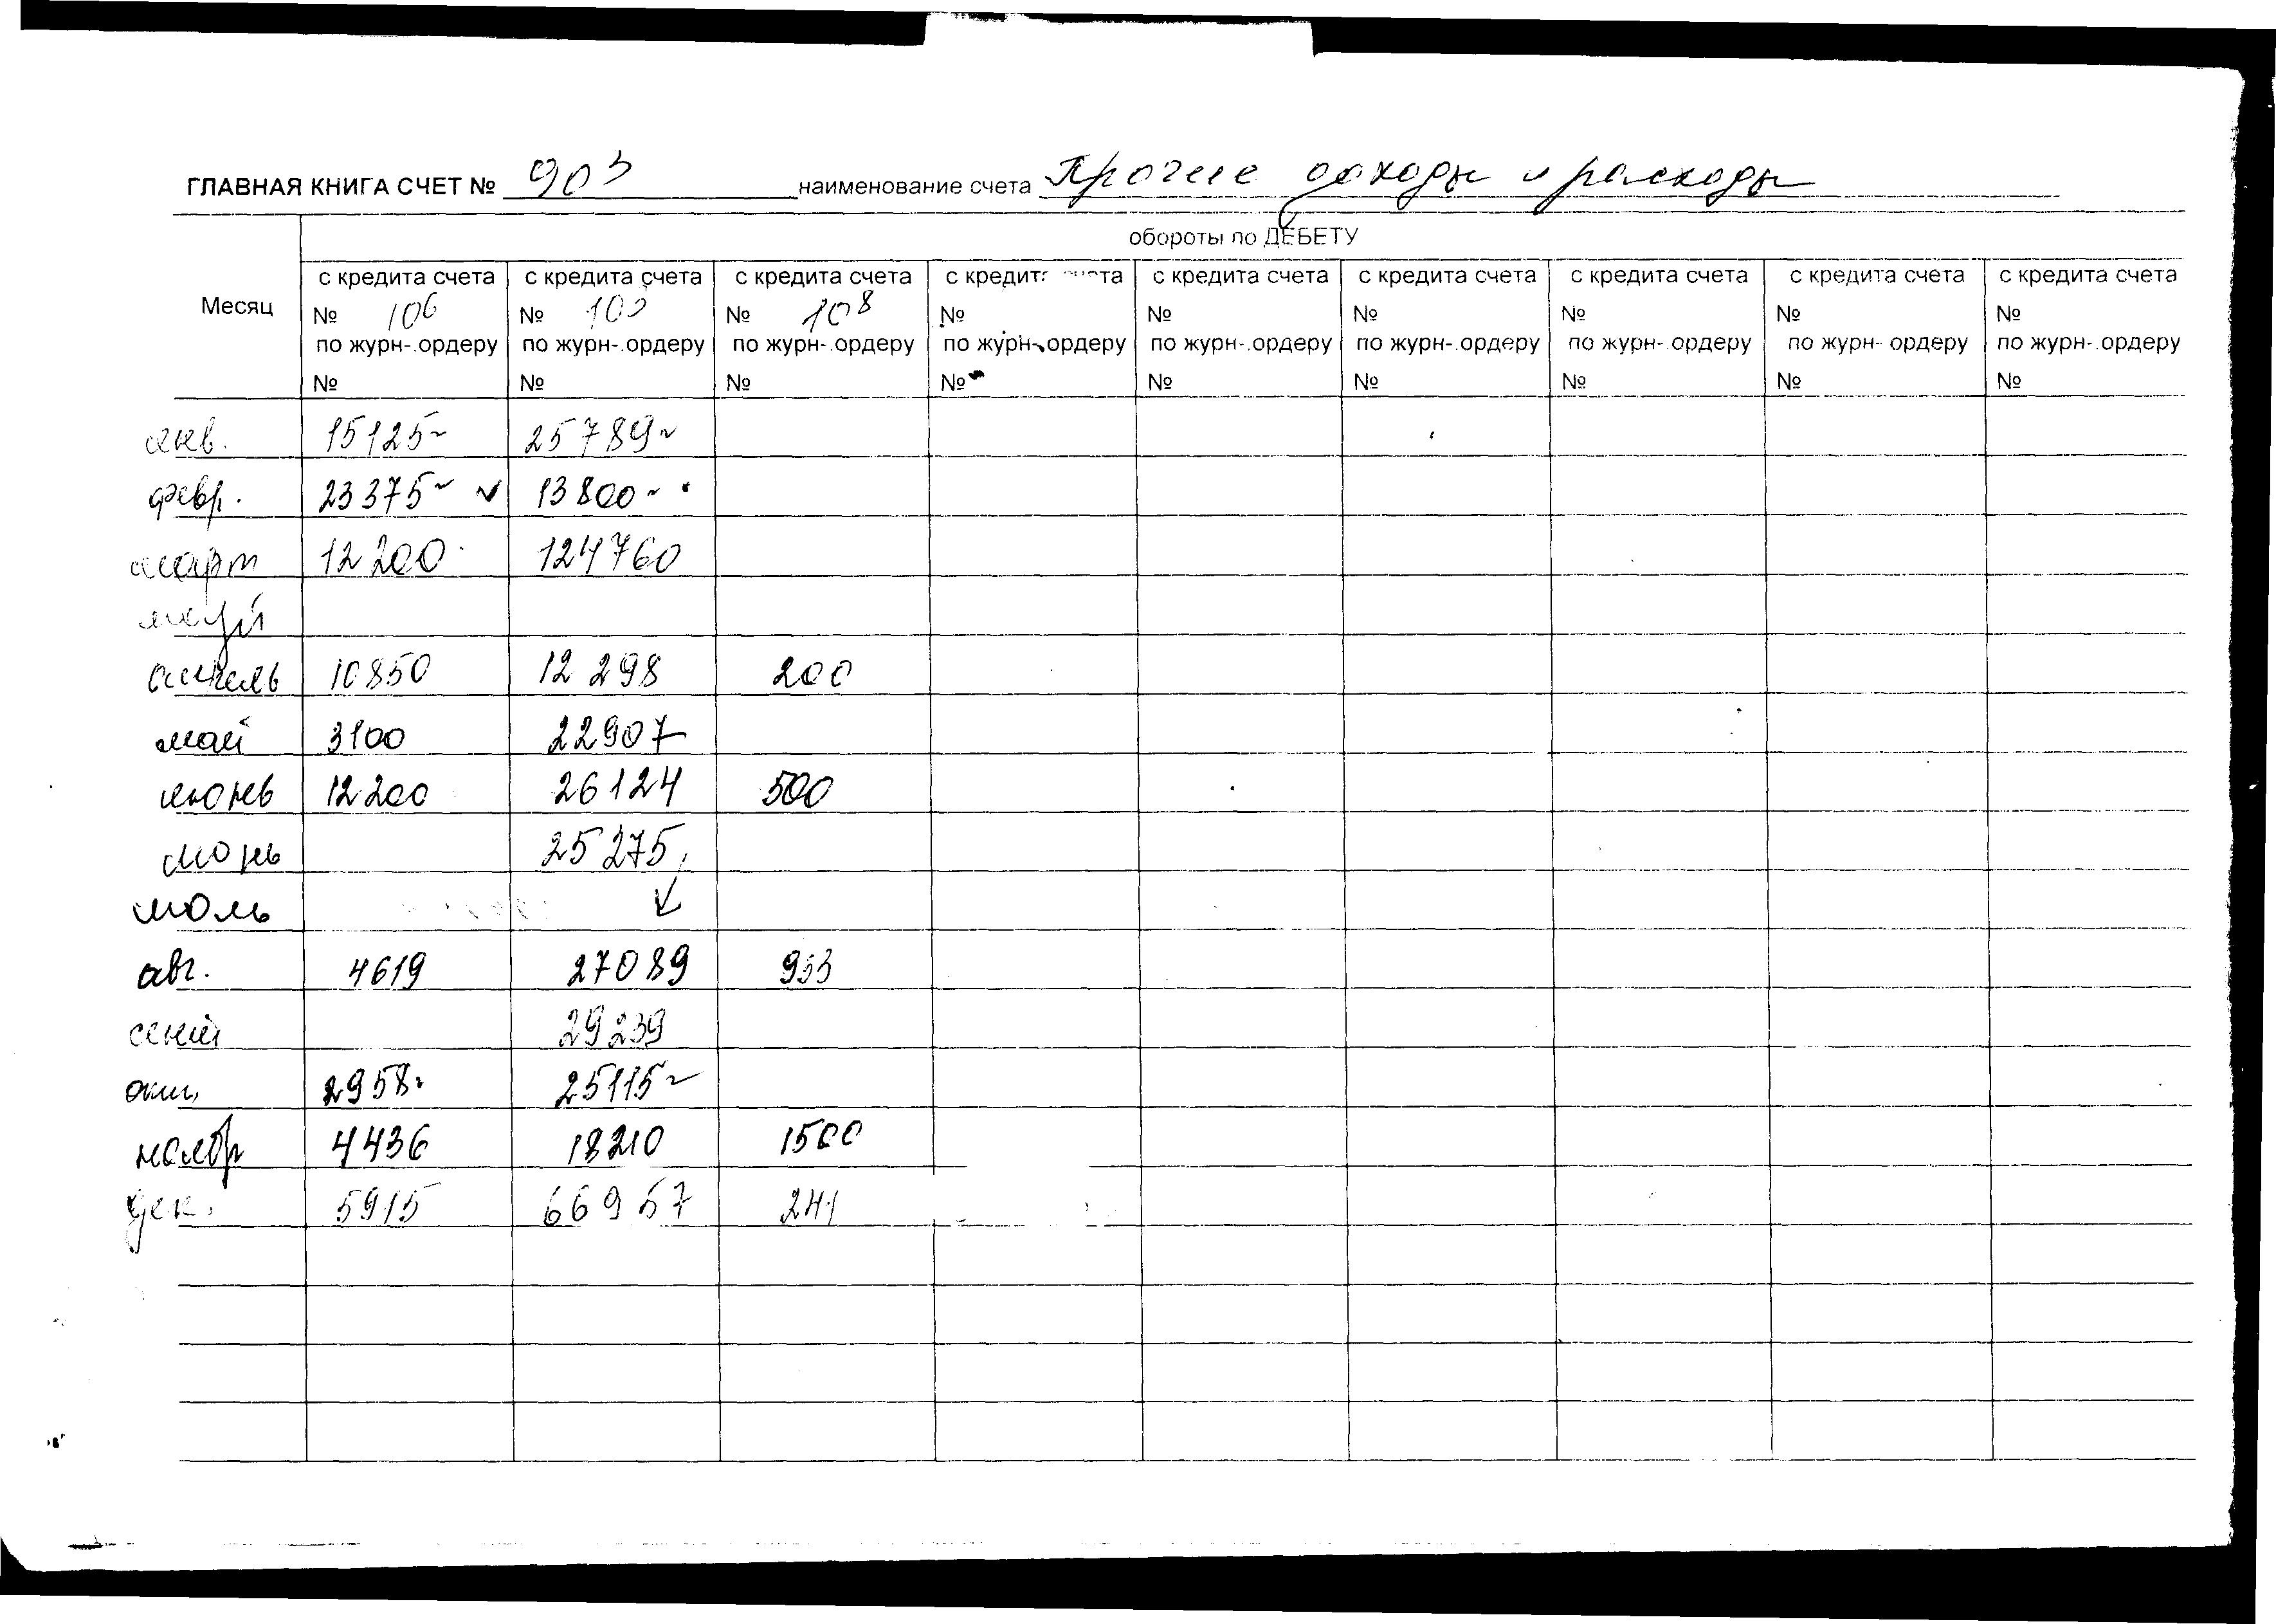 ГЛАВНАЯ КНИГА СЧЕТ № 903 наименование счета Прочие доходы и расходы
обороты по ДЕБЕТУ
Месяц
с кредита счета с кредита счета с кредита счета с кредита счета с кредита счета с кредита счета с кредита счета с кредита счета с кредита счета
№ 106 № 103 № 108 № № № № № №
по журн-.ордеру по журн-.ордеру по журн-.ордеру по журн-.ордеру по журн-.ордеру по журн-.ордеру по журн-.ордеру по журн- ордеру по журн-.ордеру
№ № № № № № № № №
янв. 15125 25789
февр. 23375 13800
март 12200 124760
апрель 10850 12298 200
май 3100 22907
июнь 12200 26124 500
июнь 25275
июль
авг. 4619 27089 953
29239
окт. 2958 25115
ноябр 4436 18210 1500
дек. 5915 66957 241